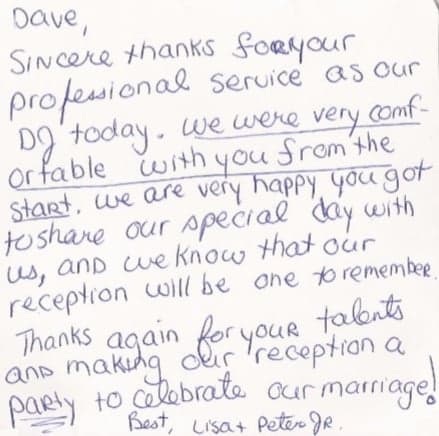 Dave,
Sincere thanks for your
professional service as our
DJ today. We were very comf-
ortable with you from the
start. We are very happy you got
to share our special day with
us, and we know that our
reception will be one to remember.
Thanks again for your talents
and making our reception a
party to celebrate our marriage!
Best, Lisa + Peter Jr.